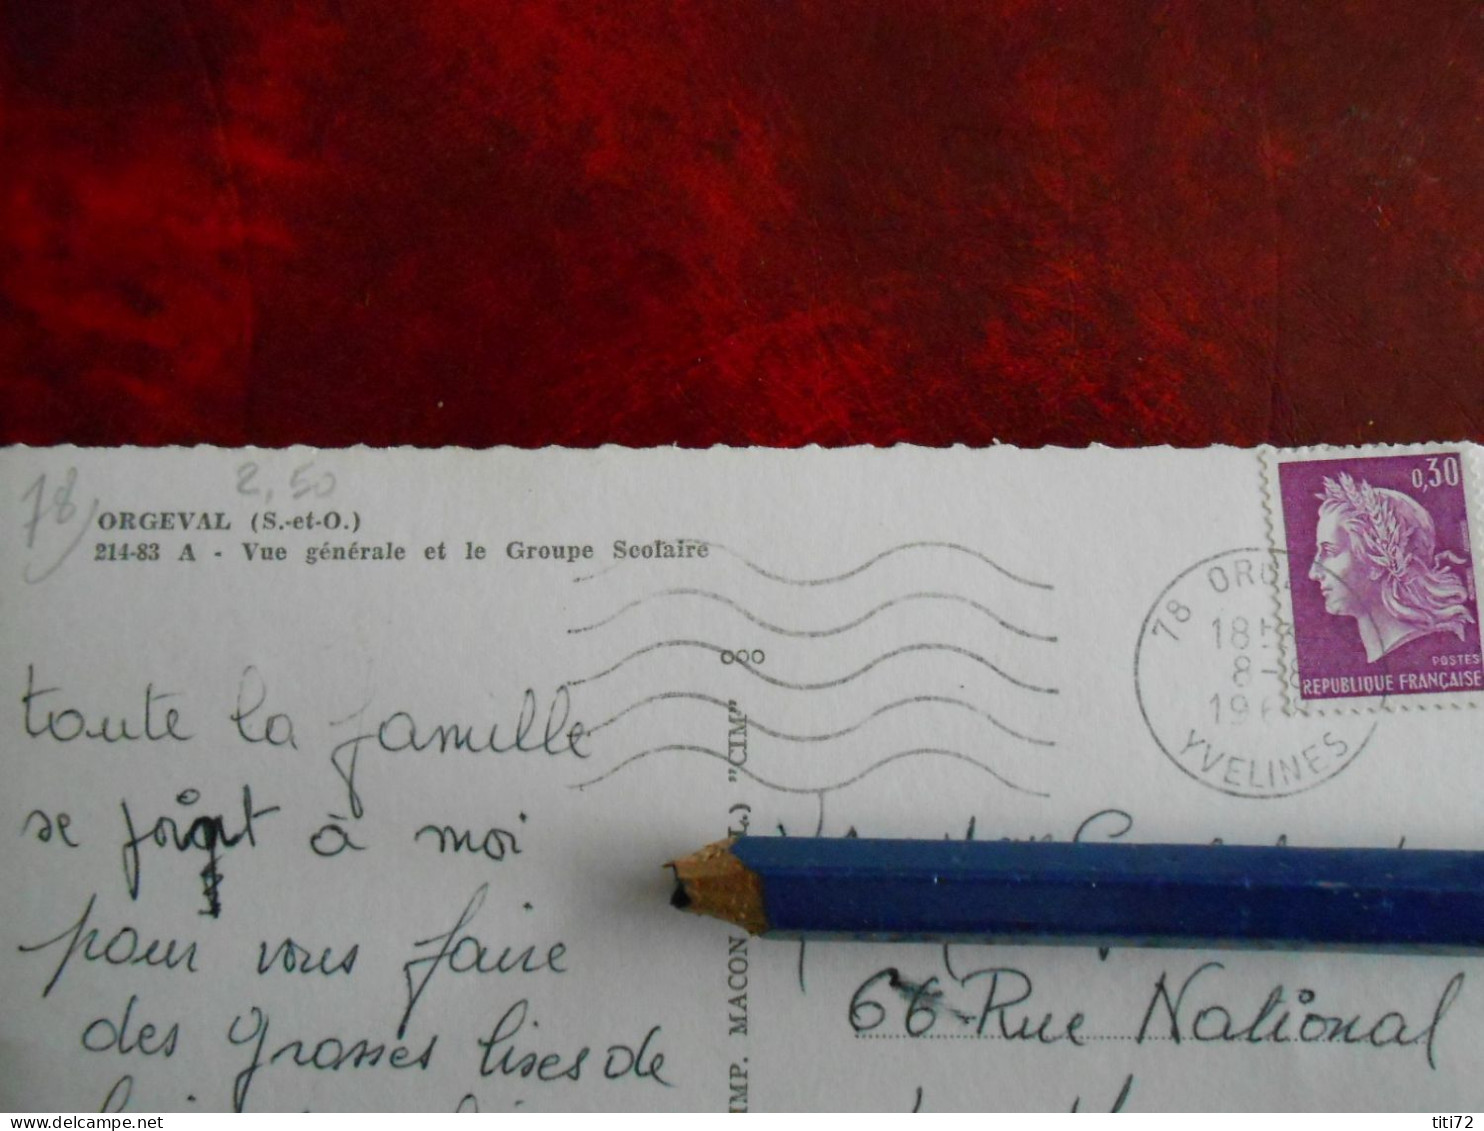 78
2,50
ORGEVAL (S.-et-O.)
214-83 A - Vue générale et le Groupe Scolaire
0,30
POSTES
REPUBLIQUE FRANÇAISE
78
18H
8-8
196
YVELINES
ooo
toute la famille
se joignt à moi
pour vous faire
des grosses bises de
IMP. MACON
L.) "CIM"
66 Rue National
titi72